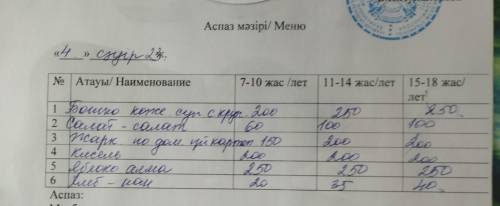 Аспаз мәзірі/ Меню
«4» сәуір 23ж.
№ Атауы/ Наименование 7-10 жас /лет 11-14 жас/лет 15-18 жас/ лет
1 Бошко коже. суп с круп. 200 250 250
2 Салат - салат 60 100 100
3 Жарк по дом. үй 150 200 200
4 Кисель 200 200 200
5 Яблоко алма 250 250 250
6 Хлеб - нан 20 35 40
Аспаз: